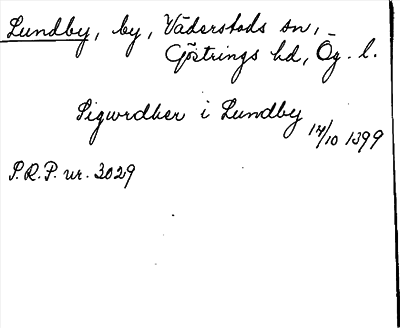 Lundby, by, Väderstads sn,
Göstrings hd, Ög. l.
Sigwrdher i Lundby
14/10 1399
S.R.P. nr. 3029